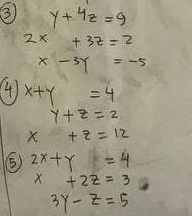 ③ y+4z=9
2x +3z=2
x -3y =-5
④ x+y =4
y+z=2
x +z=12
⑤ 2x+y =4
x +2z=3
3y-z=5